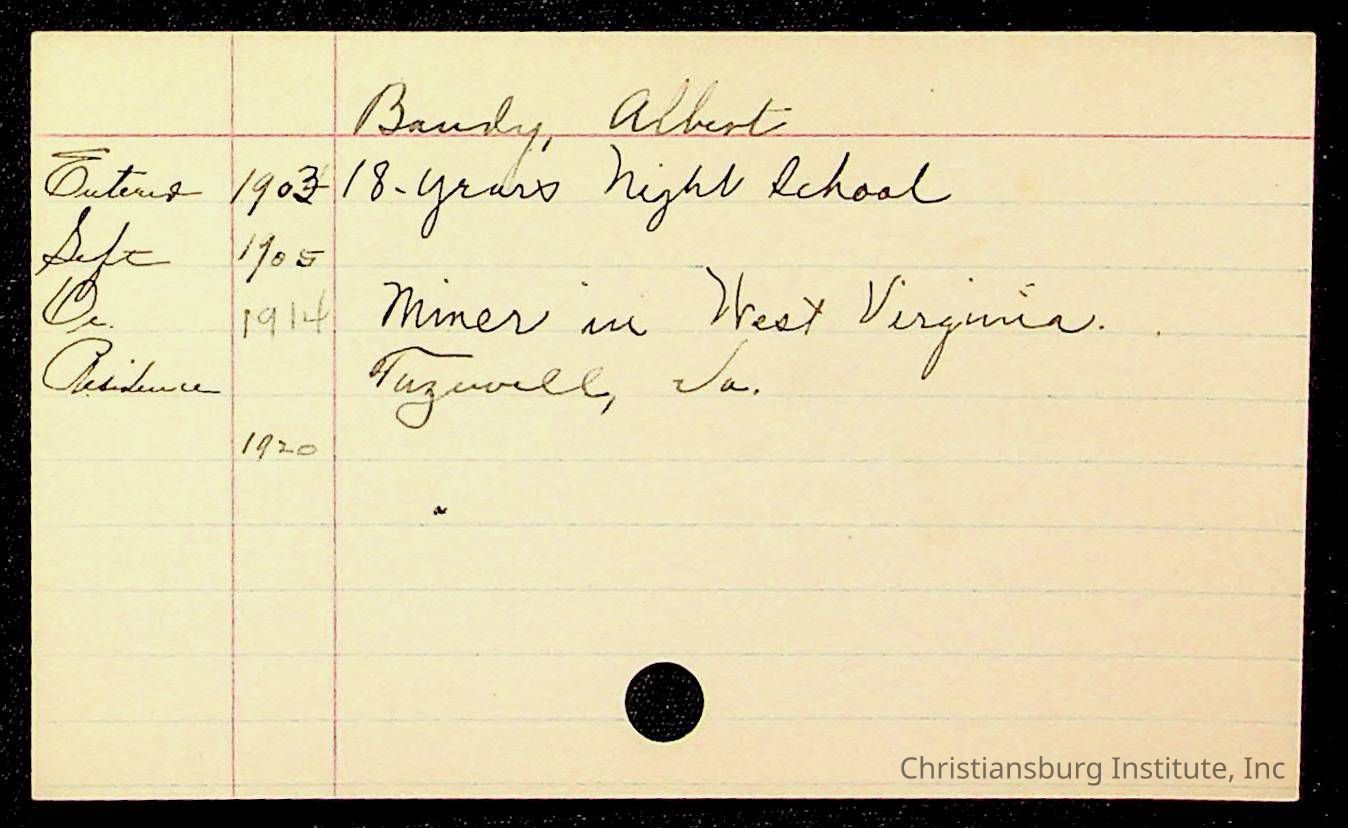 Bandy, Albert
Entered 1903 18-years Night School
Left 1905
Oc. 1914 Miner in West Virginia.
Residence Tazewell, Va.
1920
Christiansburg Institute, Inc